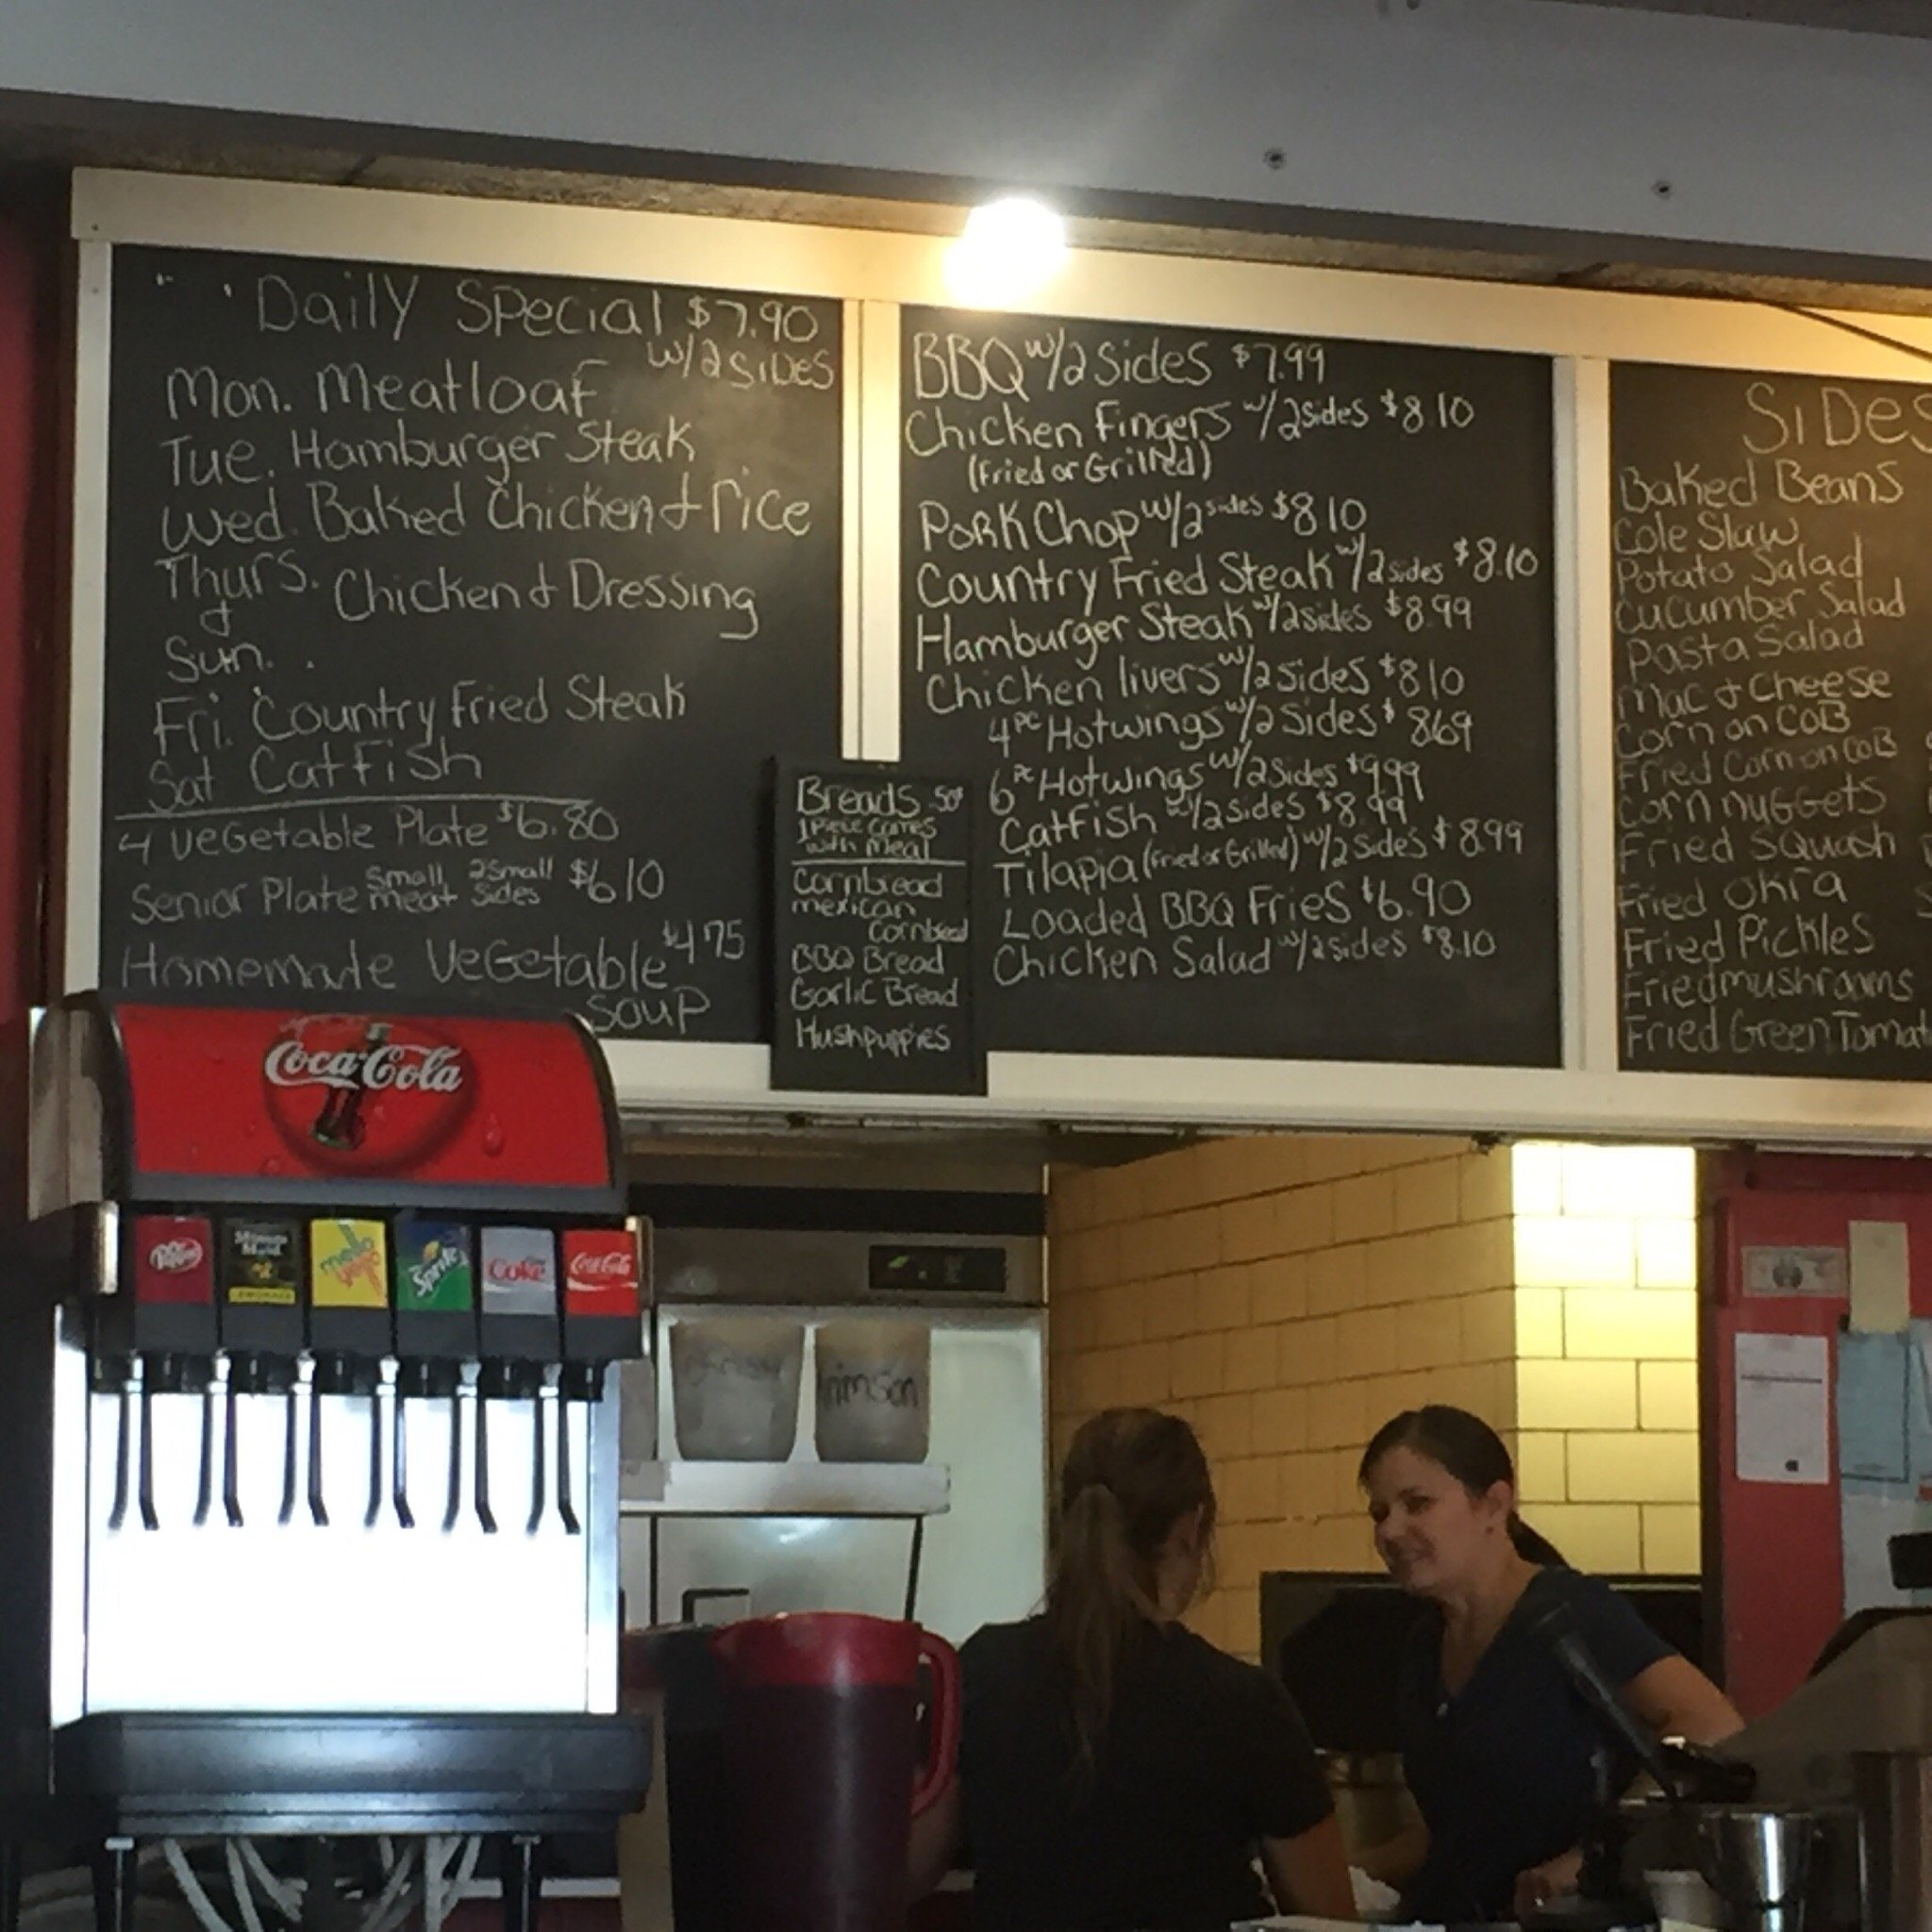 Daily Special $7.90
w/2 SiDes
Mon. Meatloaf
Tue. Hamburger Steak
Wed. Baked Chicken & rice
Thurs. & Sun. Chicken & Dressing
Fri. Country Fried Steak
Sat Catfish
4 Vegetable Plate $6.80
Senior Plate Small meat 2 Small Sides $6 10
Homemade Vegetable $4 75
Soup
Breads .50¢
1 Piece comes
with Meal
Cornbread
mexican
Cornbread
BBQ Bread
Garlic Bread
Hushpuppies
BBQ w/2 Sides $7.99
Chicken Fingers w/2 Sides $8 10
(Fried or Grilled)
Pork Chop w/2 sides $8 10
Country Fried Steak w/2 sides $8.10
Hamburger Steak w/2 sides $8.99
Chicken livers w/2 Sides $8 10
4 pc Hotwings w/2 Sides $ 8 69
6 pc Hotwings w/2 Sides $9 99
Catfish w/2 sides $8.99
Tilapia (Fried or Grilled) w/2 Sides $8.99
Loaded BBQ Fries $6.90
Chicken Salad w/2 sides $8.10
SiDes
Baked Beans
Cole Slaw
Potato Salad
Cucumber Salad
Pasta Salad
Mac & Cheese
Corn on CoB
Fried Corn on CoB
Corn nuggets
Fried Squash
Fried Okra
Fried Pickles
Fried mushrooms
Fried Green Tomat
Coca-Cola
Dr Pepper
Minute Maid
LEMONADE
mello yello
Sprite
Coke
Coca-Cola